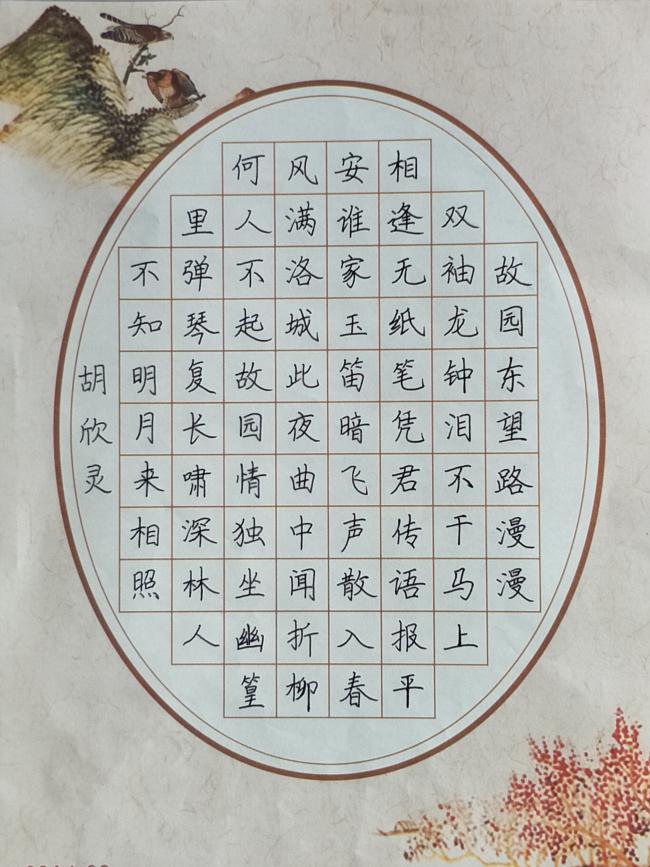 故园东望路漫漫
双袖龙钟泪不干马上
相逢无纸笔凭君传语报平
安谁家玉笛暗飞声散入春
风满洛城此夜曲中闻折柳
何人不起故园情独坐幽篁
里弹琴复长啸深林人
不知明月来相照
胡欣灵